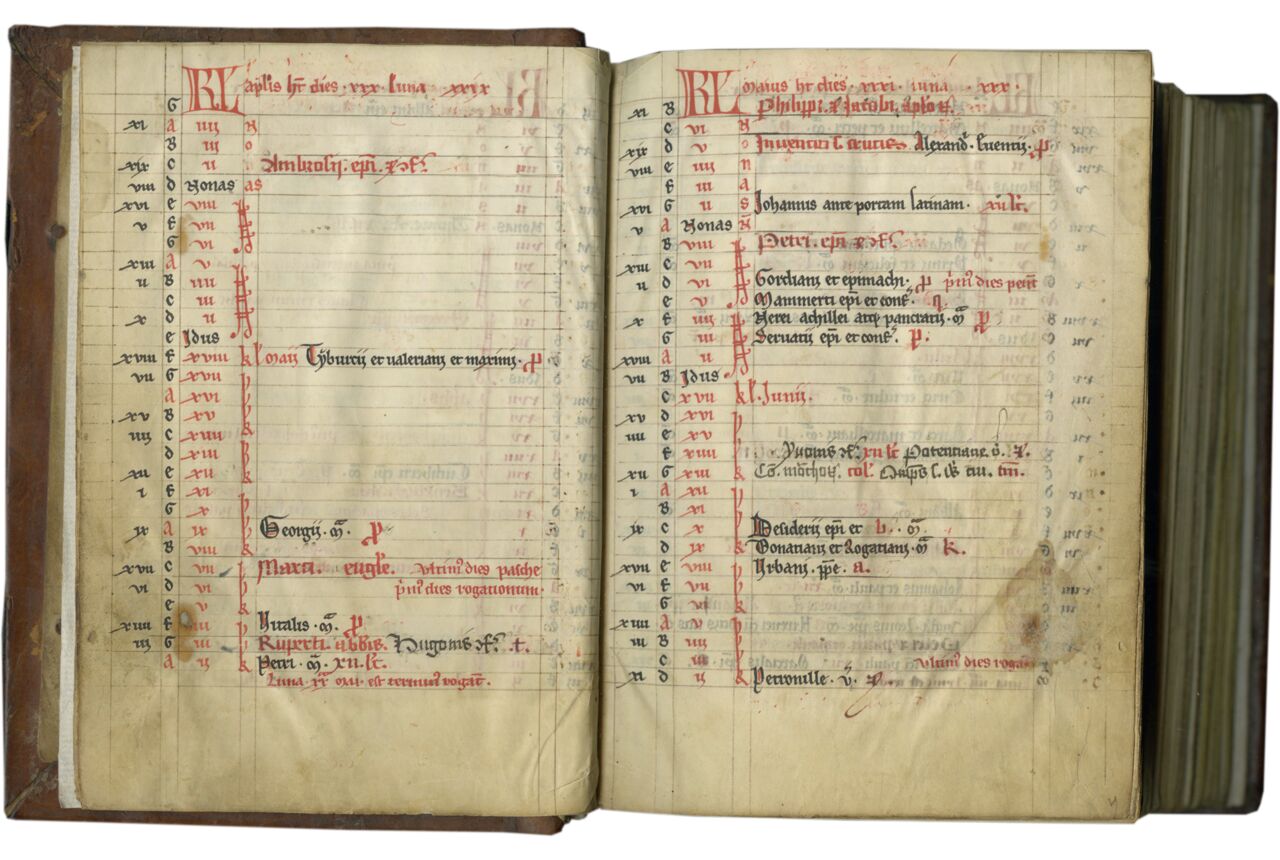 KL aplis ht dies · xxx · luna · xxix
G
xi A iiii N
B iii o
xix c ii n Ambrosij. epi. et cf.
viii d Nonas as
xvi e viii
v f vii
G vi
xiii A v
ii B iiii
c iii
x d ii
e Idus
xviii f xviii kl. maii Tyburcij et ualeriani et maximi. p
vii G xvii
A xvi
xv B xv
iiii c xiiii
d xiii
xii e xii
i f xi
G x
ix A ix Georgij. m. p
B viii
xvii c vii Marci. eugle. vltim9 dies pasche
vi d vi prim9 dies rogationum.
e v
xiiii f iiii Vitalis. m. p
iii G iii Ruperti abbis. Hugonis cf. t.
A ii Petri. m. xii. lc.
Luna xx mai est terminus rogat.
KL Maius ht dies · xxxi · luna · xxx ·
xi B Philippi. et Jacobi. aplorum.
c vi N
xix d v o Inuentio s. crucis. Alexand. euentij. p
viii e iiii n
f iii a
xvi G ii s Johannis ante portam latinam. xii lc.
v A Nonas N
B viii Petri. epi et cf.
xiii c vii
ii d vi Gordiani et epimachi. p prim9 dies pent
e v Mammerti epi et conf.
x f iiii Nerei achillei atq pancratij. m p
G iii Seruatij epi et conf. p.
xviii A ii
vii B Idus
c xvii kl. Junij.
xv d xvi
iiii e xv
f xiiii Yuonis cf. xii lc Potentiane. v.
xii G xiii
i A xii
B xi
ix c x Desiderij epi et m.
d ix Donatiani et Rogatiani. m k.
xvii e viii Vrbani. ppe. a.
vi f vii
G vi
xiiii A v
iii B iiii
c iii vltim9 dies rogat
xi d ii Petronille. v.